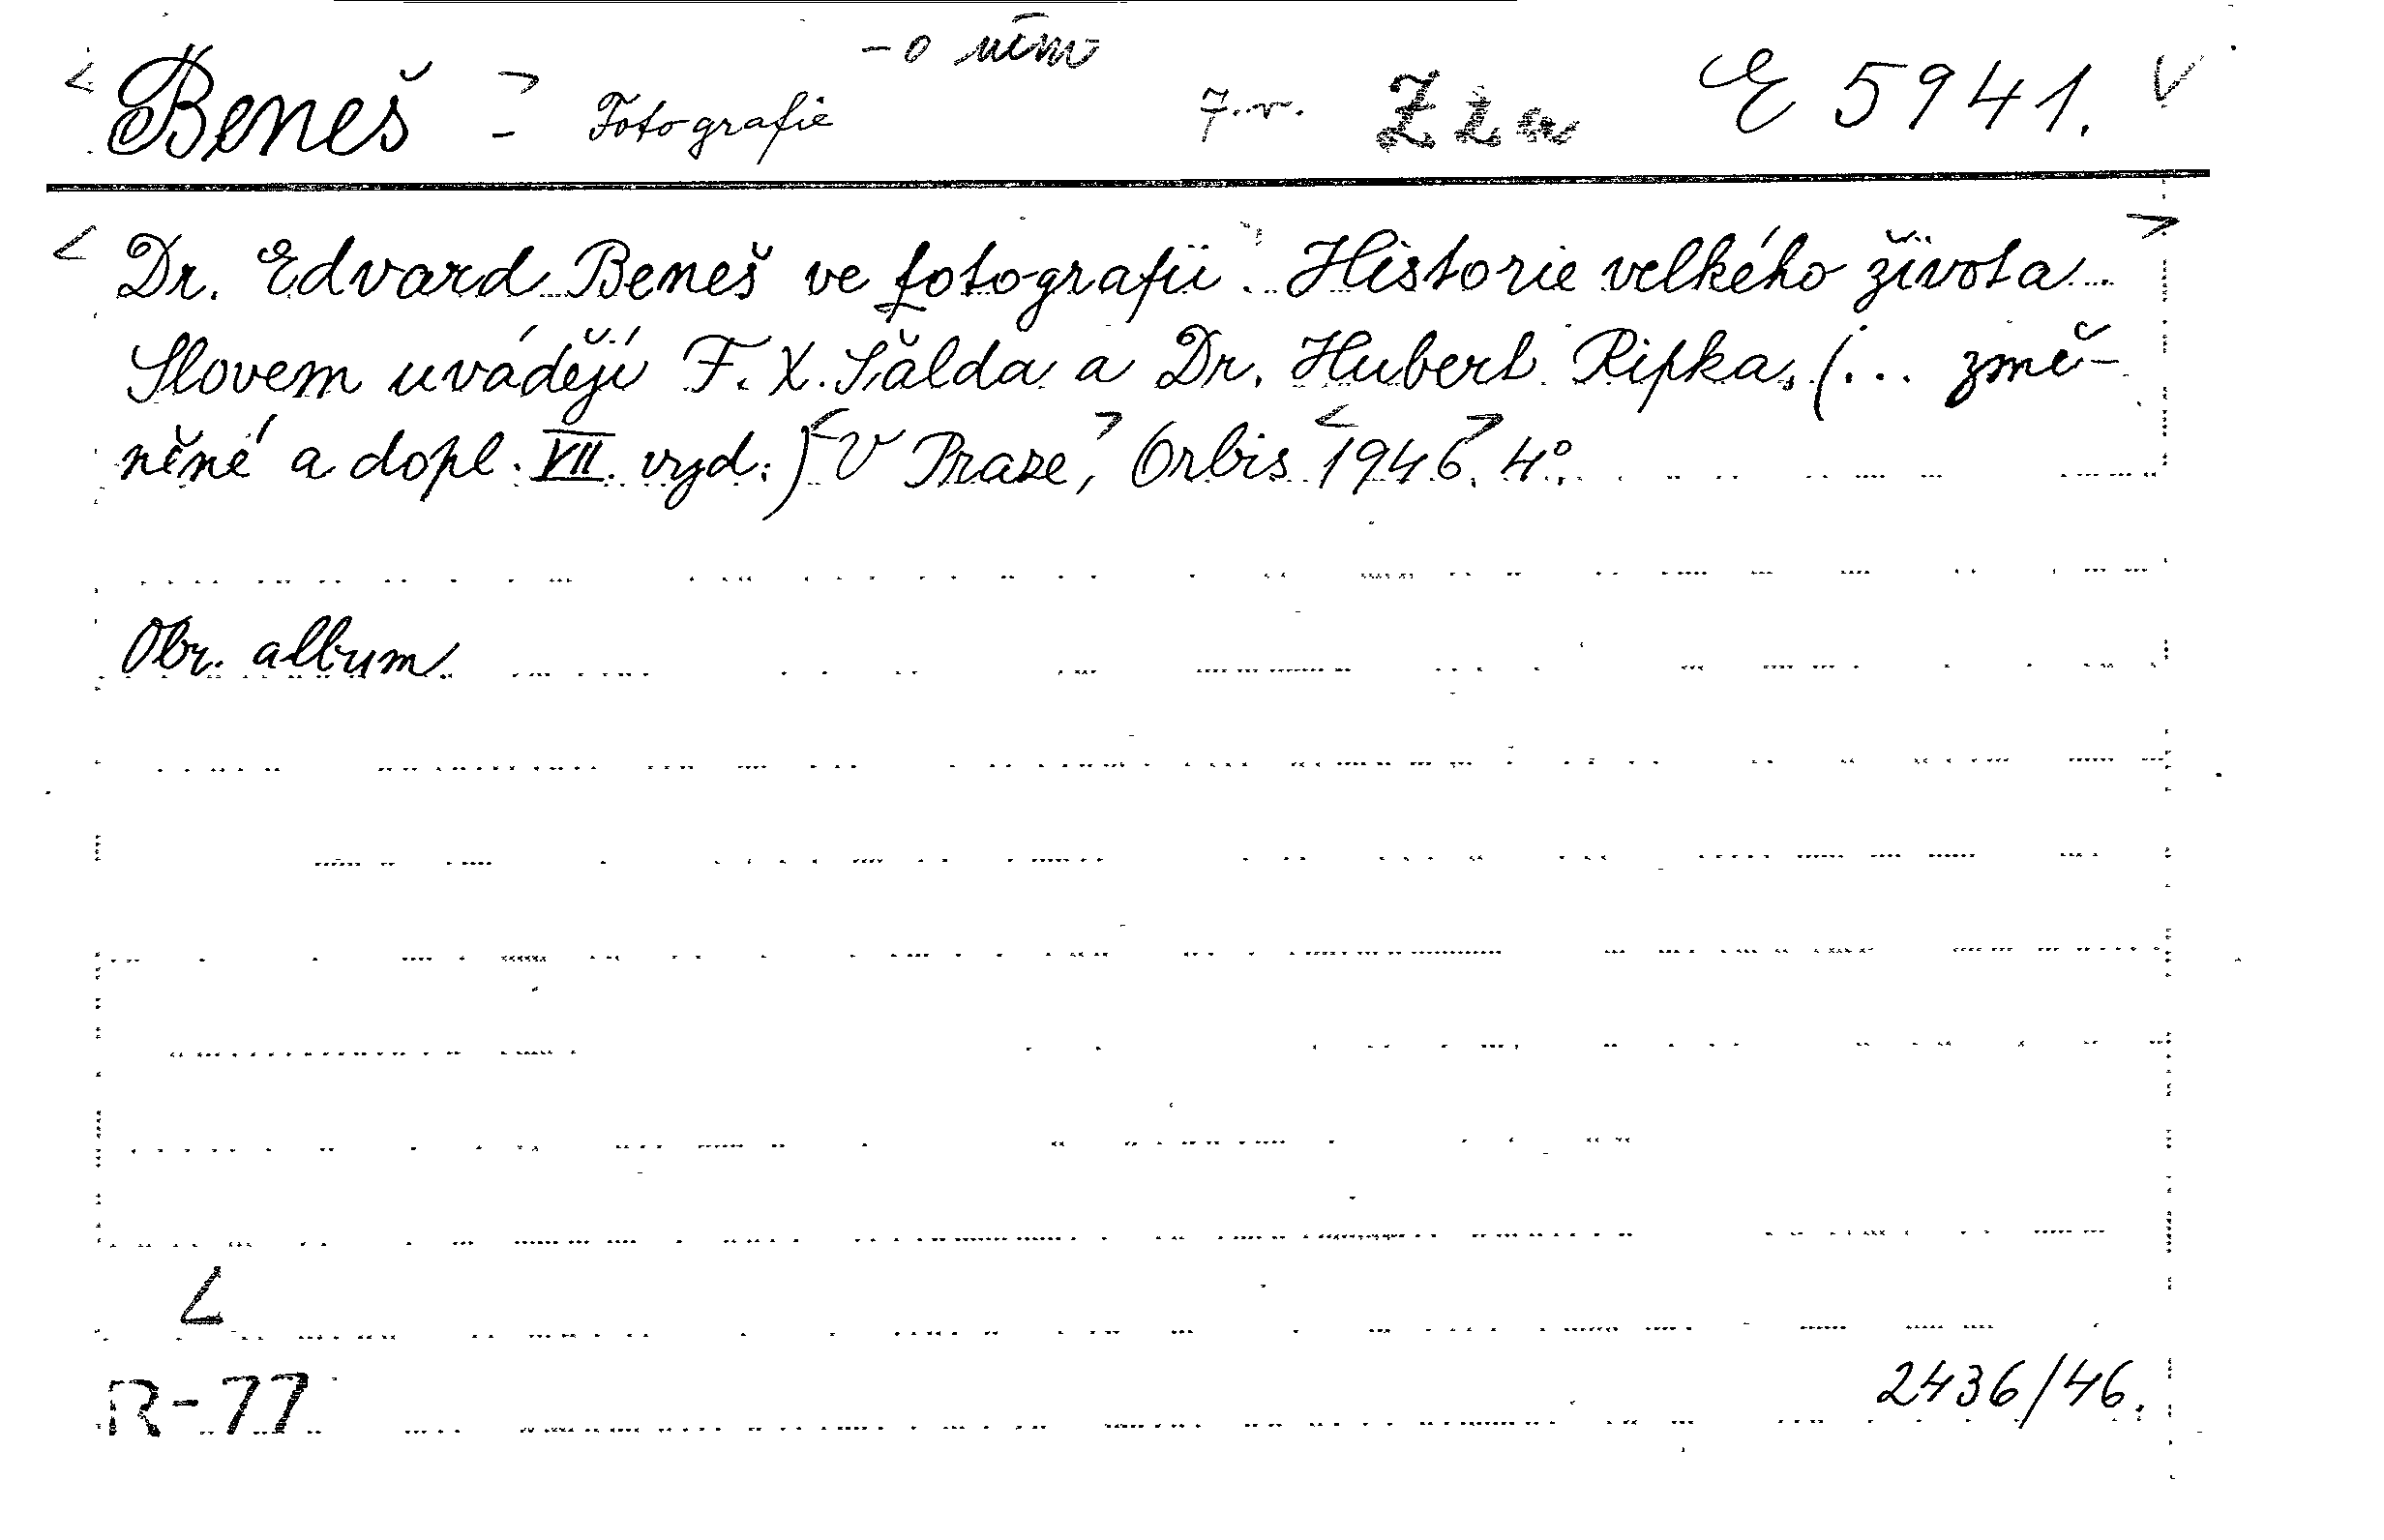 - o ním
<Beneš> - Fotografie 7.r. Z ž a E 5941. V
<Dr. Edvard Beneš ve fotografii. Historie velkého života>
Slovem uvádějí F. X. Šalda a Dr. Hubert Ripka. (... změ-
něné a dopl. VII. vyd.) <V Praze>, Orbis <1946>. 4°.
Obr. album.
L
R-77 2436/46.